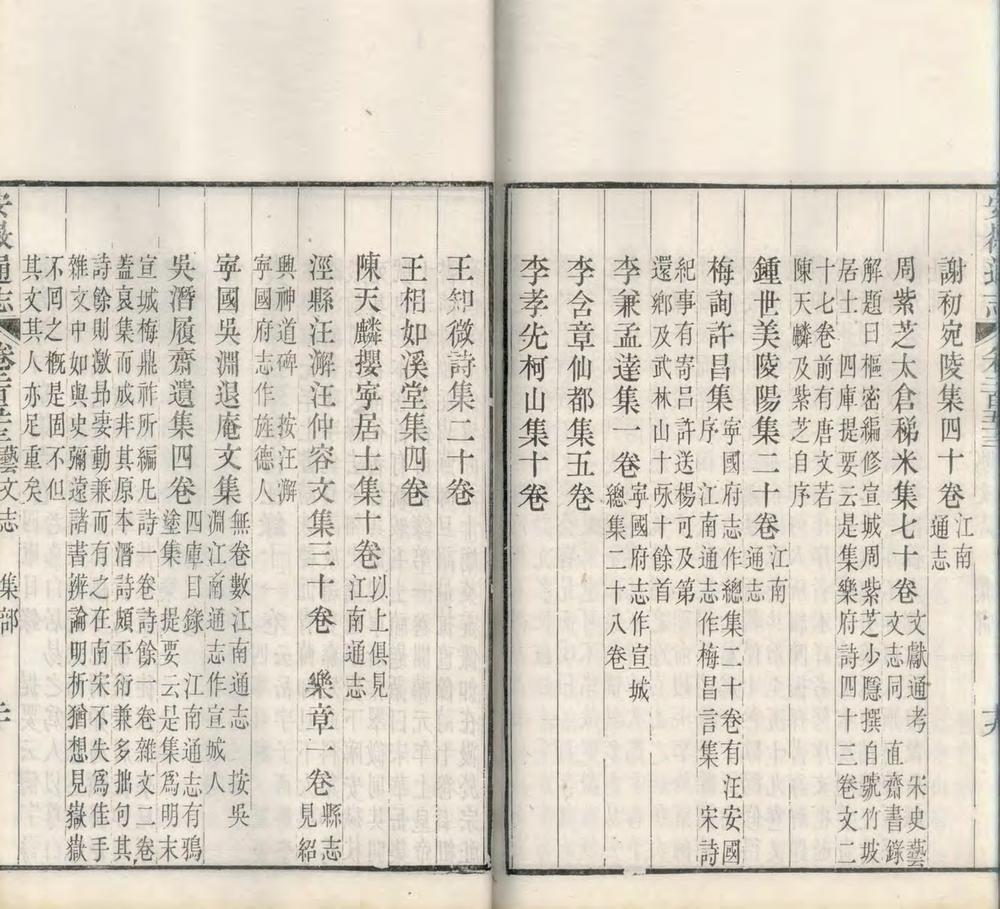 謝初宛陵集四十卷江南通志
周紫芝太倉稊米集七十卷文獻通考 直齋書錄 宋史藝文志同
解題曰樞密編修宣城周紫芝少隱撰自號竹坡
居士 四庫提要云是集樂府詩四十三卷文二
十七卷前有唐文若
陳天麟及紫芝自序
鍾世美陵陽集二十卷江南通志
梅詢許昌集寧國府志作總集三十卷有汪安國序 江南通志作梅昌言集 宋詩
紀事有寄呂許送楊可及第
還鄉及武林山十咏十餘首
李兼孟達集一卷寧國府志作宣城總集二十八卷
李含章仙都集五卷
李孝先柯山集十卷
王知微詩集二十卷
王相如溪堂集四卷
陳天麟攖寧居士集十卷以上俱見江南通志
涇縣汪澥汪仲容文集三十卷 樂章一卷縣志見紹
興神道碑 按汪澥
寧國府志作旌德人
寧國吳淵退庵文集無卷數江南通志 按吳淵江南通志作宣城人
吳潛履齋遺集四卷四庫目錄 江南通志有鴉塗集 提要云是集爲明末
宣城梅鼎祚所編凡詩一卷詩餘一卷雜文二卷
蓋裒集而成非其原本潛詩頗平衍兼多拙句其
詩餘則激昻悽動兼而有之在南宋不失爲佳手
雜文中如與史彌遠諸書辨論明析猶想見嶽嶽
不囘之概是固不但
其文其人亦足重矣
安徽通志 卷三百四十三藝文志 集部